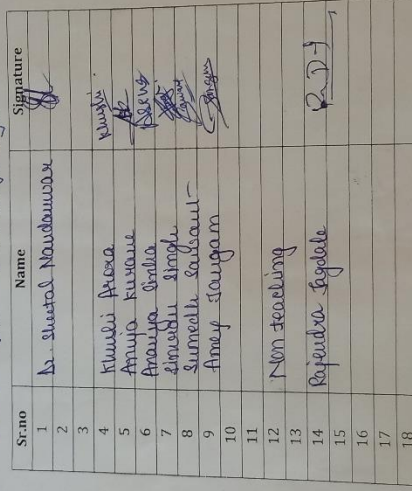 Sr.no Name Signature
1 Dr. Sheetal Nandanwar
2
3
4 Khushi Arora Khushi
5 Amija Kurane
6 Ananya Sinha
7 Singh
8 Sumedh
9 Amey Jangam Jangam
10
11
12 Non teaching
13
14 Rajendra Jagdale R.D.J
15
16
17
18